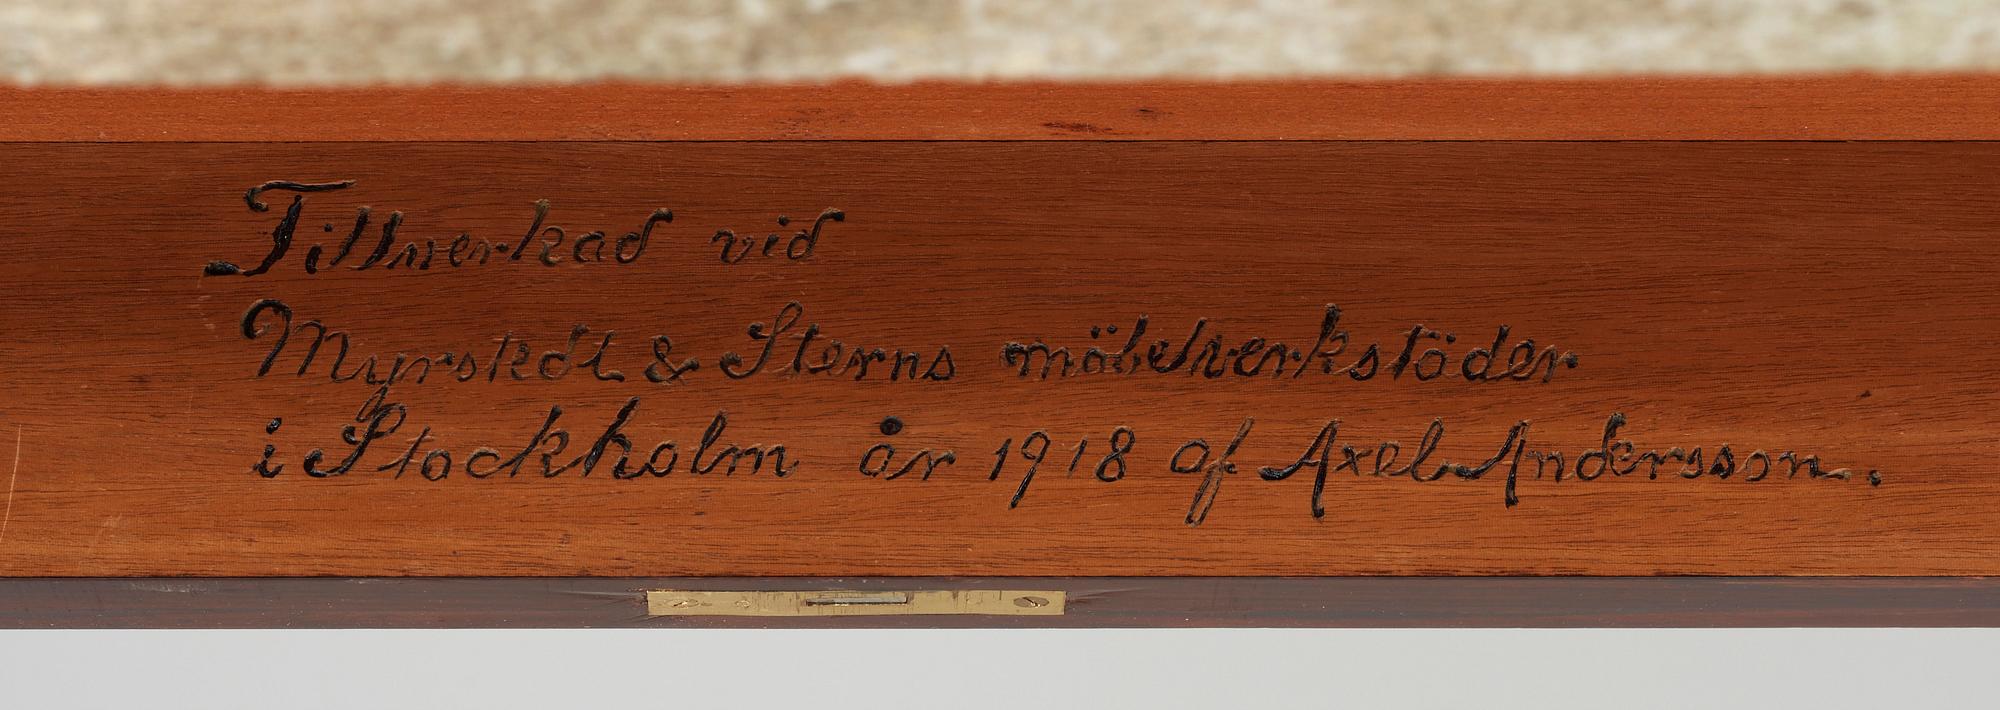 Tillverkad vid
Myrstedt & Sterns möbelverkstäder
i Stockholm år 1918 af Axel Andersson.